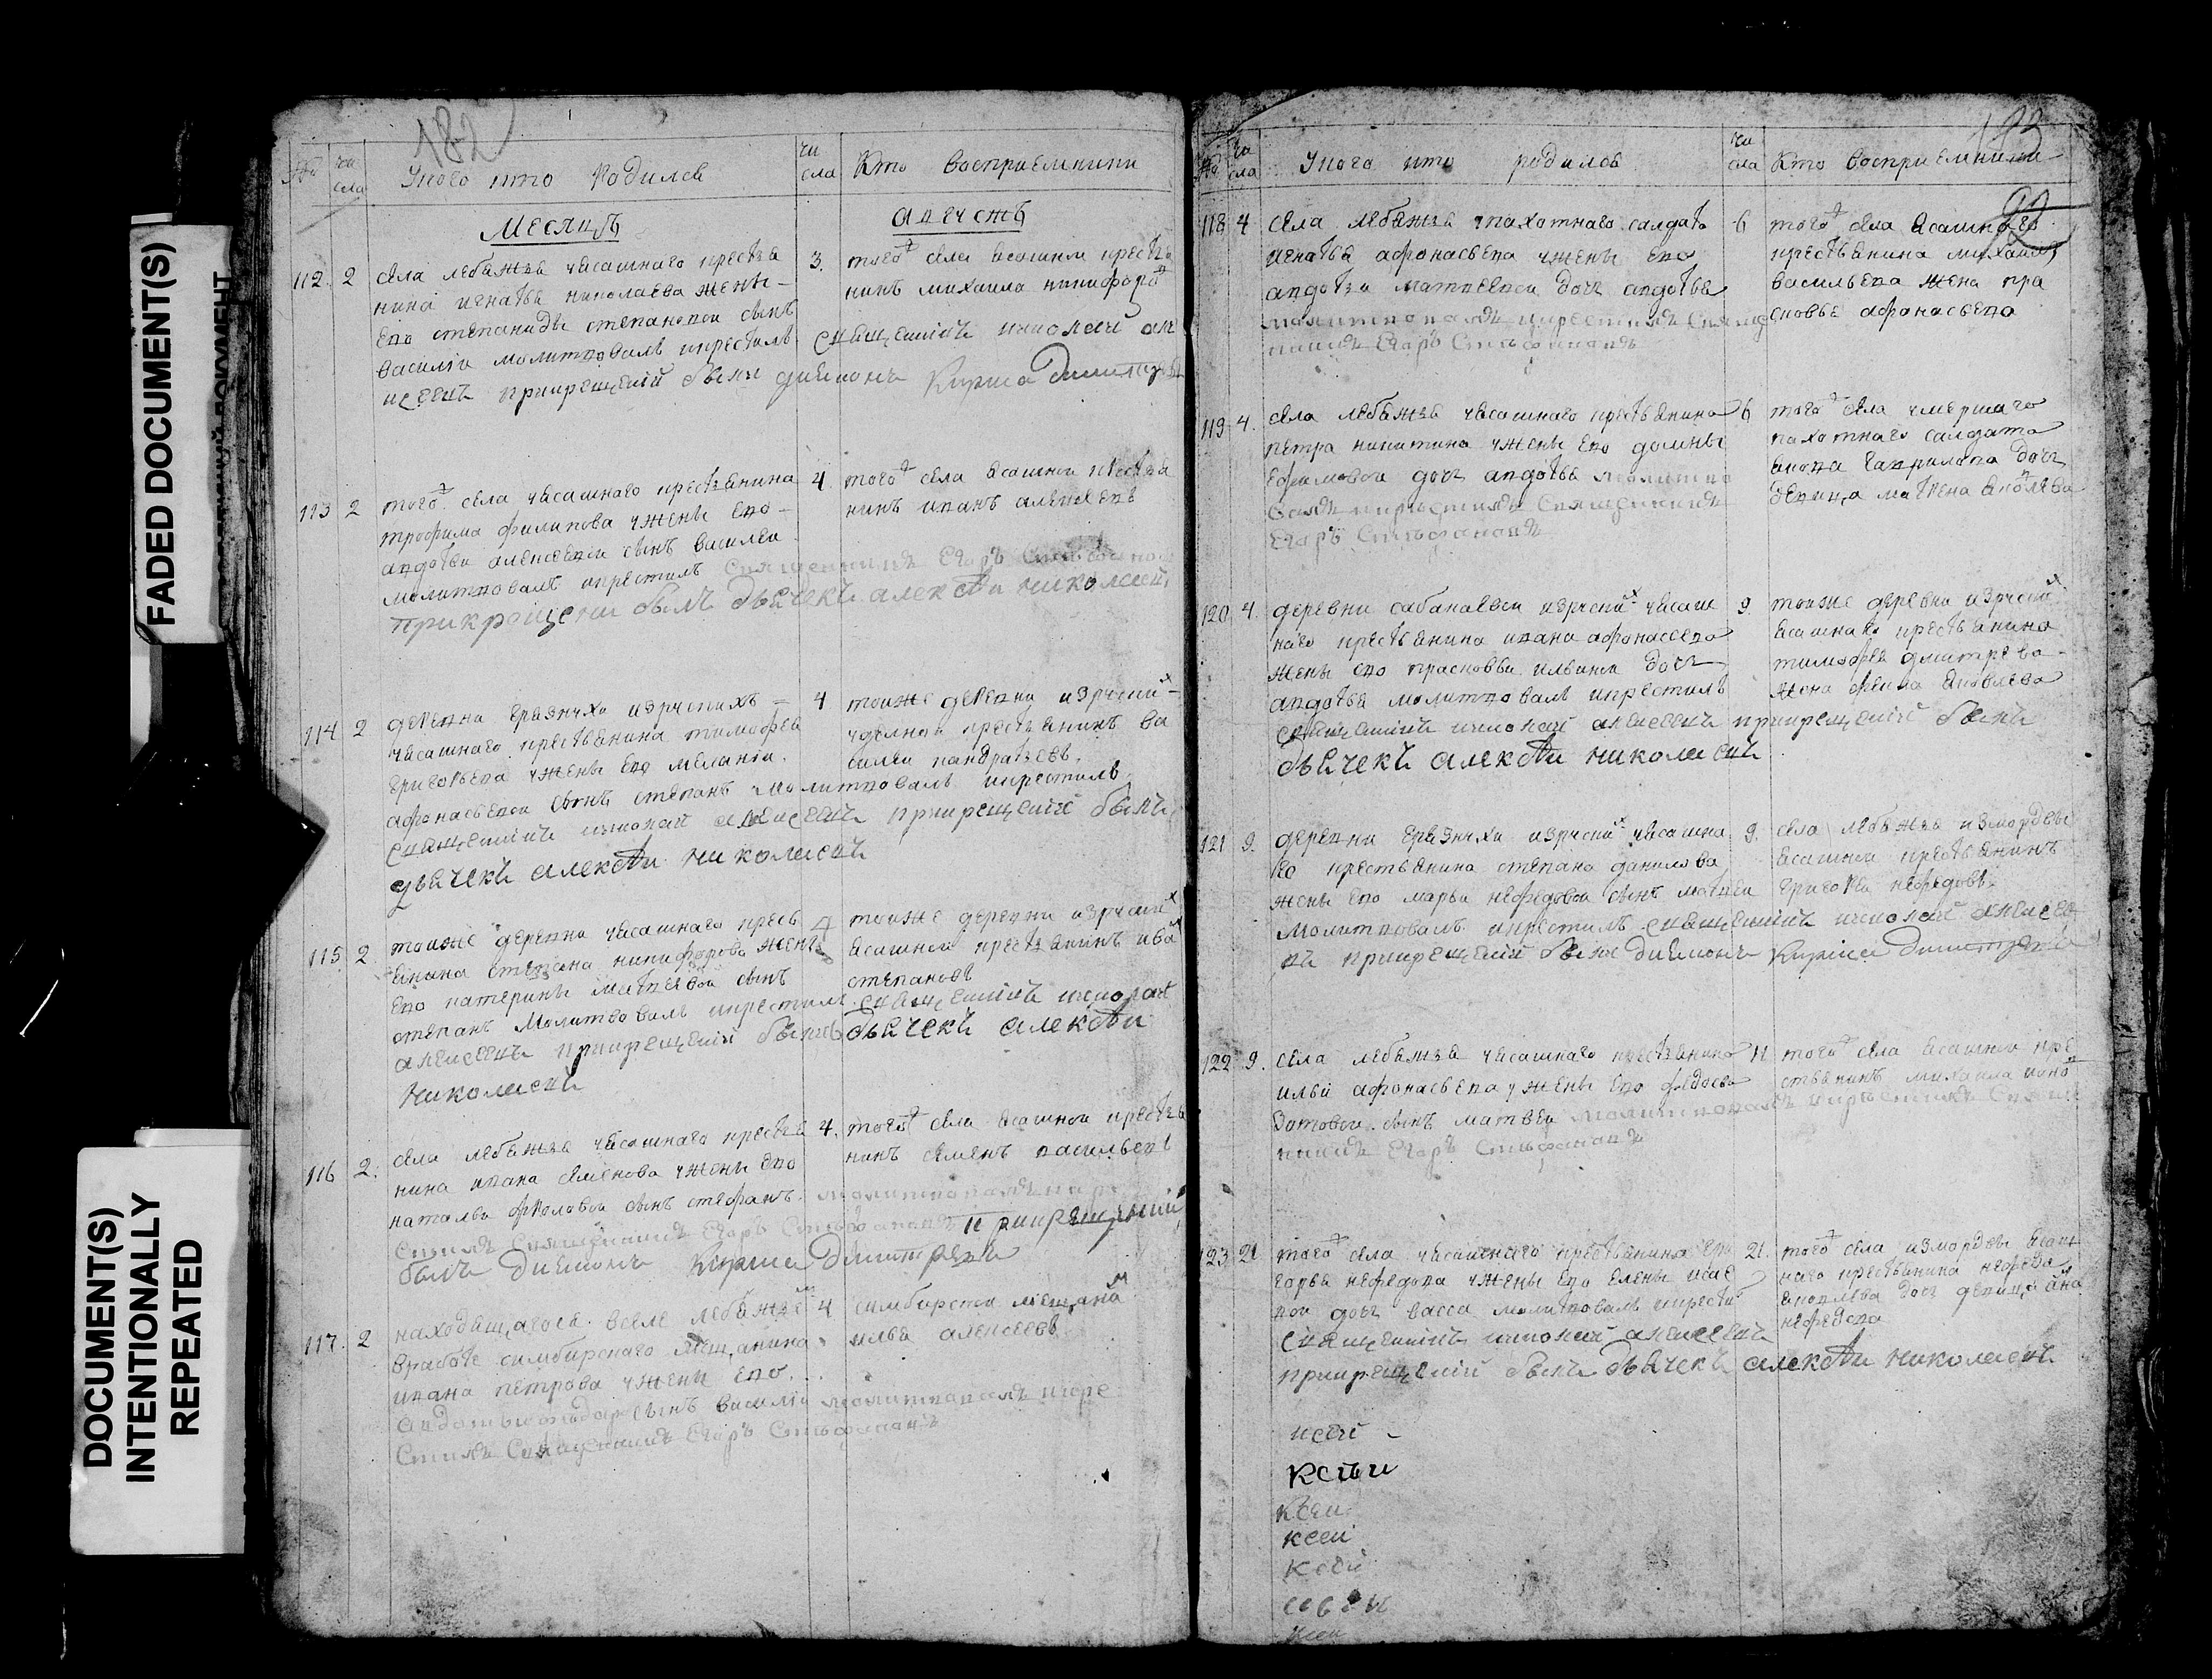 FADED DOCUMENT(S)
DOCUMENT(S)
INTENTIONALLY
REPEATED
182
№ чи сла Укого кто Родилсѧ чи сла Кто восприемники
Месяцъ августъ
112. 2 села лебяжья уясашнаго крестья
нина игнатья николаева жены
его степаниды степановой сынъ
василій молитвовалъ икрестилъ
3. того села ясашной крестья
нинъ михаила никифоро
священникъ николай але
ксеевъ прикрещеніи былъ дияконъ Кирила Димитріевъ
113 2 того села уясашнаго крестьянина
трофима филипова ужены его
авдотьи алексеевой сынъ василеи
молитвовалъ икрестилъ священникъ Егоръ
прикрещени былъ дьячекъ алексѣи николаевъ
4. того села ясашной крестья
нинъ иванъ алексеевъ
114 2 деревни грязнухи изрускихъ
уясашнаго крестьянина тимофея
григорьева ужены его меланіи
афонасьевой сынъ степанъ молитвовалъ икрестилъ
священникъ николай алексеевъ прикрещеніи былъ
дьячекъ алексѣи николаевъ
4 тоиже деревни изруских
уделной крестьянинъ ва
силеи кандратьевъ
115. 2. тоиже деревни уясашнаго кресть
янина степана никифорова жены
его катерины матвѣевой сынъ
степанъ молитвовалъ икрестилъ священникъ николай
алексеевъ прикрещеніи былъ дьячекъ алексѣи
николаевъ
4 тоиже деревни изруских
ясашной крестьянинъ ива
степановъ
116 2. села лебяжья уясашнаго крестья
нина ивана семенова ужены его
натальи фроловой сынъ стефанъ молитвовалъ икре
стилъ священникъ Егоръ Стефановъ прикрещеніи
былъ дияконъ Кирила Димитріевъ
4. того села ясашной крестья
нинъ семенъ васильевъ
117. 2 находящагося вселе лебяжье
вработе симбирскаго мещанина
ивана петрова ужены его
сынъ василій молитвовалъ икре
стилъ священникъ Егоръ Стефановъ
4 симбирски мещани
илья алексеевъ
№ чи сла Укого кто родилсѧ чи сла Кто восприемники
118 4 села лебяжья упахотнаго салдата
игнатья афонасьева ужены его
авдотьи матвеевой дочь авдотья
молитвовалъ икрестилъ священ
никъ Егоръ Стефановъ
6 того села ясашного
крестьянина михаила
васильева жена пра
сковья афонасьева
119 4. села лебяжья уясашнаго крестьянина
петра никитина ужены его домны
ефимовой дочь авдотья молитво
валъ икрестилъ священникъ
Егоръ Стефановъ
6 того села умершаго
пахотнаго салдата
якова гаврилова дочь
девица матрена яковлева
120 4. деревни сабанаевки изруских уясаш
наго крестьянина ивана афонасьева
жены его прасковьи ильиной дочь
авдотья молитвовалъ икрестилъ
священникъ николай алексеевъ прикрещеніи былъ
дьячекъ алексѣи николаевъ
9. тоиже деревни изруских
ясашнаго крестьянина
тимофея дмитрева
жена фекла яковлева
121 9. деревни грязнухи изруских уясашна
го крестьянина степана данилова
жены его марьи нефедовой сынъ матвеи
молитвовалъ икрестилъ священникъ николай алексее
въ прикрещеніи былъ дияконъ Кирила Димитріевъ
9. села лебяжья измордвы
ясашной крестьянинъ
григорей нефедовъ
122 9. села лебяжья уясашнаго крестьянина
ильи афонасьева ужены его федосьи
зотовой сынъ матвеи молитвовалъ икрестилъ священ
никъ Егоръ Стефановъ
11 того села ясашной кре
стьянинъ михаила
123 21 того села уясашнаго крестьянина
нефедова ужены его елены исае
вой дочь васса молитвовалъ икрести
священникъ николай алексеевъ
прикрещеніи былъ дьячекъ алексѣи николаевъ
21. того села измордвы ясаш
наго крестьянина нефеда
яковлева дочь девица
нефедова
ксеи
ксеи
ксеи
ксеи